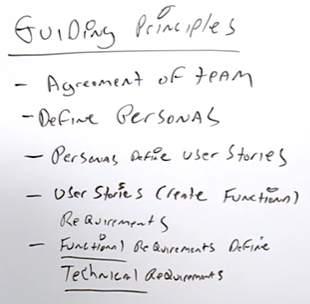 Guiding Principles
- Agreement of team
- Define Personas
- Personas Define User Stories
- User Stories Create Functional
Requirements
- Functional Requirements Define
Technical Requirements